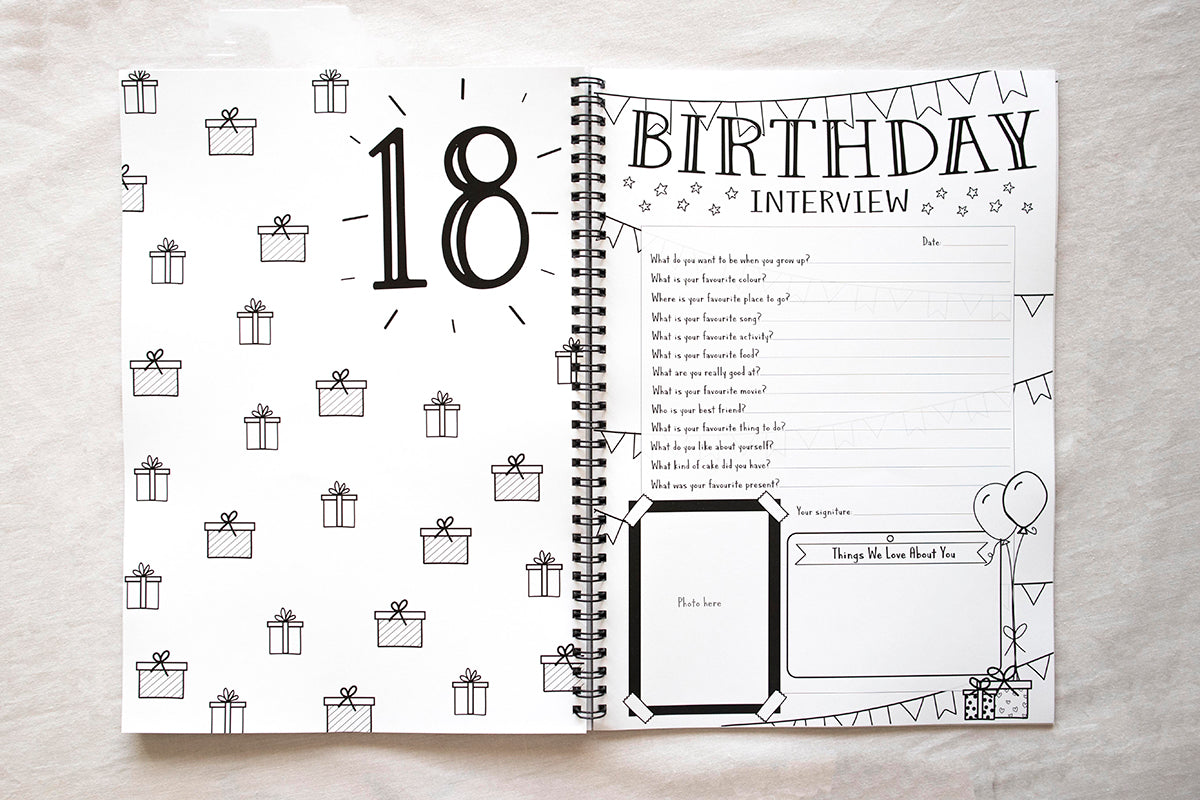 18
BIRTHDAY
INTERVIEW
Date:
What do you want to be when you grow up?
What is your favourite colour?
Where is your favourite place to go?
What is your favourite song?
What is your favourite activity?
What is your favourite food?
What are you really good at?
What is your favourite movie?
Who is your best friend?
What is your favourite thing to do?
What do you like about yourself?
What kind of cake did you have?
What was your favourite present?
Your signiture:
Things We Love About You
Photo here